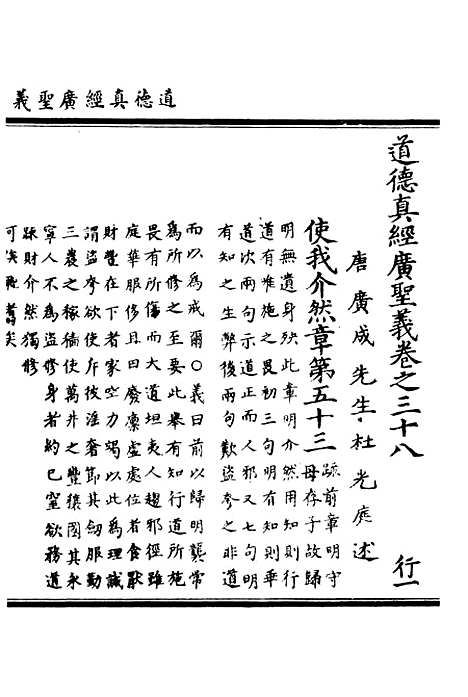 道德真經廣聖義
道德真經廣聖義卷之三十八 行一
唐廣成先生杜光庭述
使我介然章第五十三
疏前章明守
母存子故歸
明無遺身殃此章明介然用知則行
道有唯施之畏初三句明有知則乖
道次兩句示道正而人邪又七句明
有知之生弊後兩句歎盜夸之非道
而以為戒爾○義曰前以歸明襲常
為所修之至要此舉有知行道所施
畏有所傷而大道坦夷人趨邪徑雖
庭華服侈且曰廢廩虛處位者食厭
財豐在下者家空力竭以此為理誠
謂盜夸欲使斥彼淫奢節其劒服勤
三農之稼穡使萬井之豐穰國其永
寧人不為盜修身者約己窒欲務道
疎財介然獨修
可矣